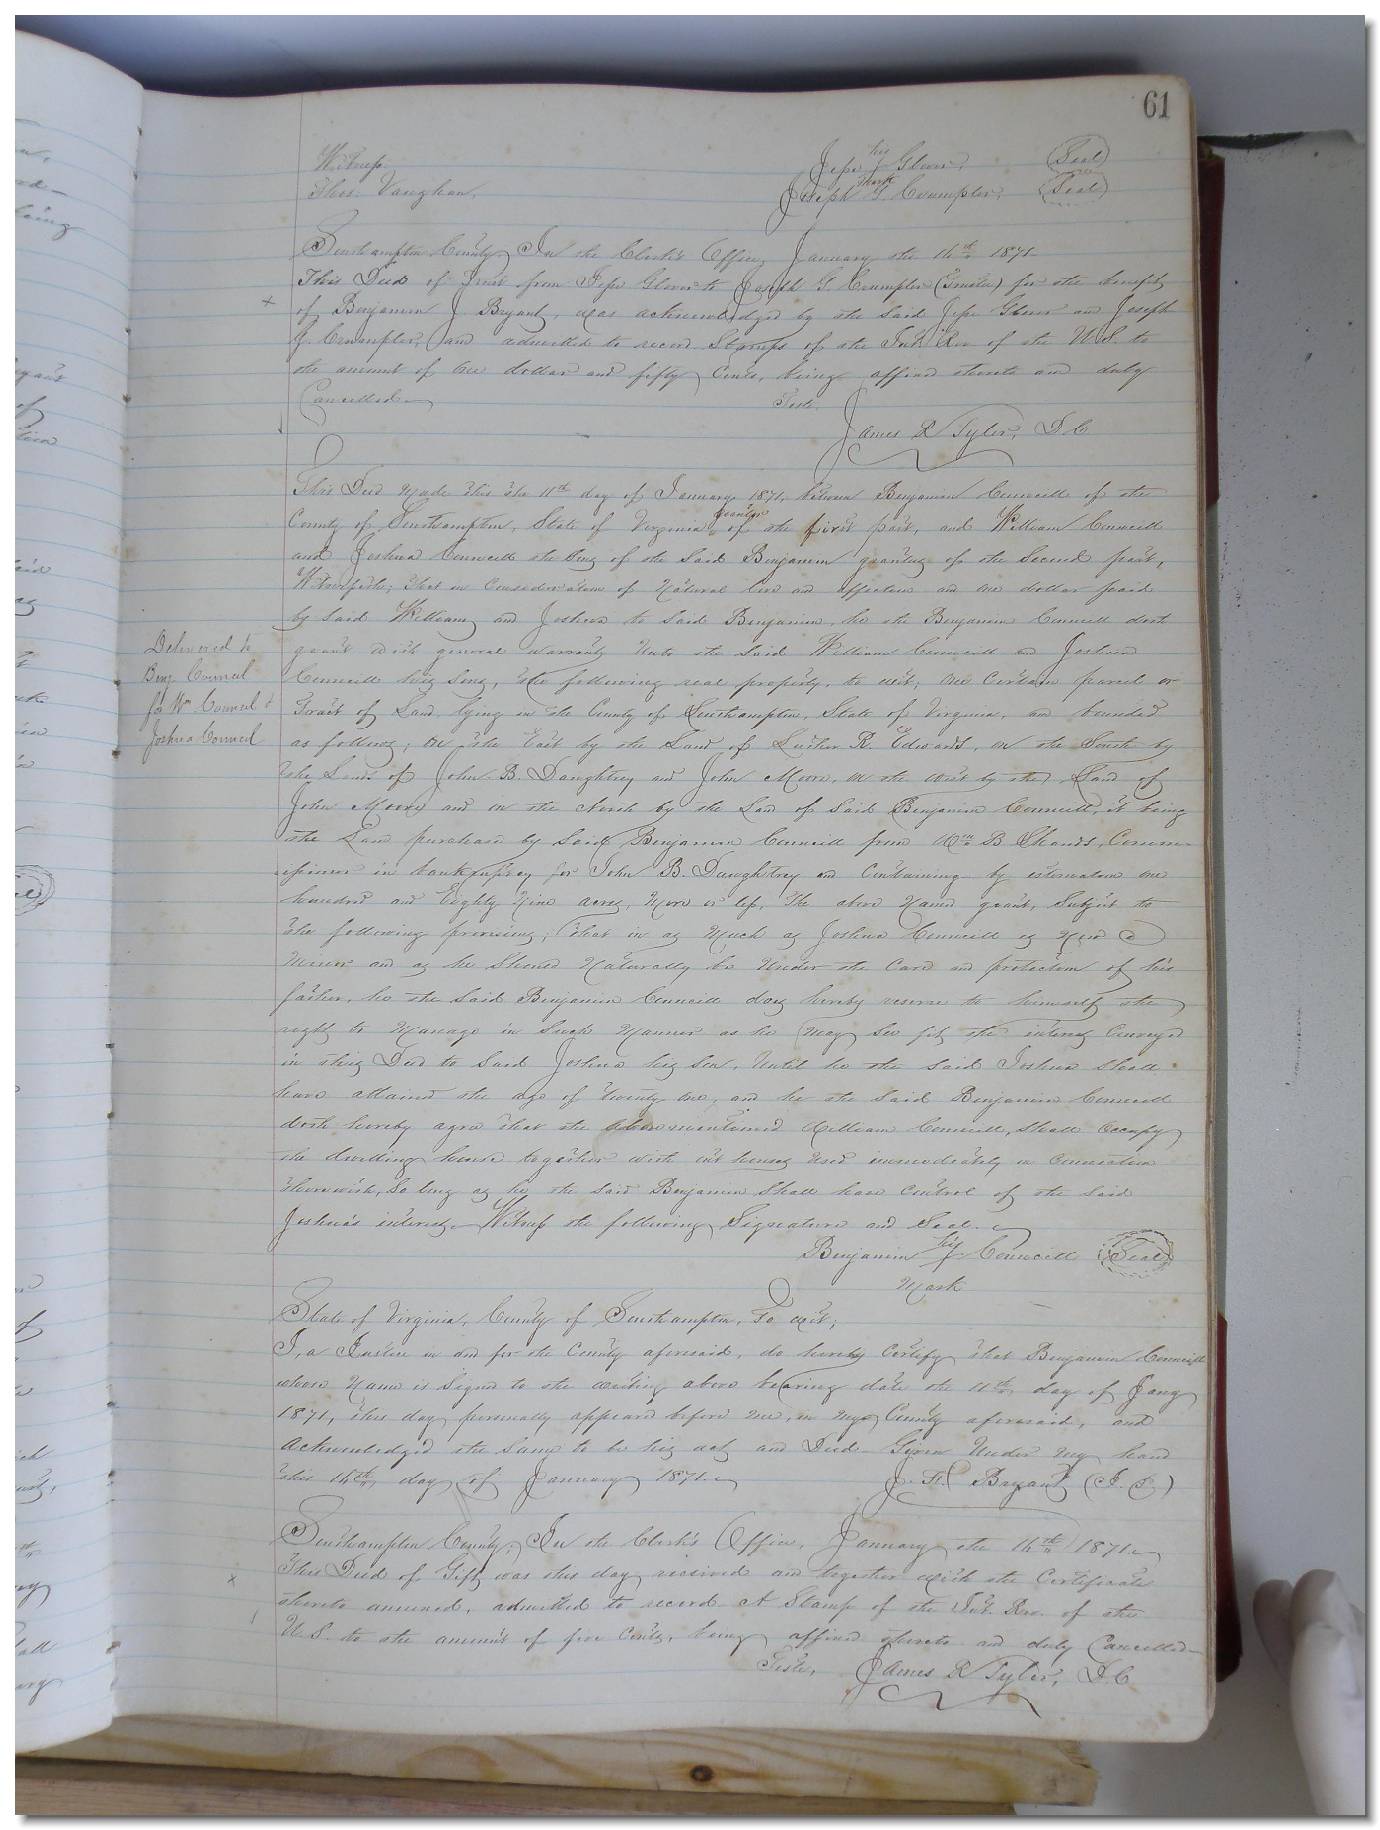 61
Witness his
Jesse + Glover, (Seal)
Thos. Vaughan, mark
Joseph G. Crumpler, (Seal)
Southampton County, In the Clerk's Office, January the 16th 1871.
This Deed of Trust from Jesse Glover to Joseph G. Crumpler (Trustee) for the benefit
of Benjamin J. Bryant, was acknowledged by the said Jesse Glover and Joseph
G. Crumpler, and admitted to record Stamps of the Int. Rev. of the U.S. to
the amount of one dollar and fifty Cents, being affixed thereto and duly
Cancelled. Teste,
James R Tyler, D.C
This Deed made this the 11th day of January 1871, between Benjamin Councill of the
County of Southampton, State of Virginia, grantor of the first part, and William Councill
and Joshua Councill the sons of the said Benjamin grantees of the Second part,
Witnesseth; that in Consideration of Natural love and affection and one dollar paid
by said William and Joshua to said Benjamin, he the Benjamin Councill doth
grant with general warranty Unto the said William Councill and Joshua
Councill his sons, the following real property, to wit; One Certain parcel or
Tract of Land lying in the County of Southampton, State of Virginia, and bounded
as follows; On the East by the Land of Luther R. Edwards, on the South by
the Lands of John B. Daughtrey and John Moore, on the west by the Land of
John Moore and on the North by the Land of said Benjamin Councill, it being
the Land purchased by said Benjamin Councill from Wm B Shands, Comm-
issioner in bankruptcy for John B. Daughtrey and Containing by estimation one
hundred and Eighty Nine acres, More or less, The above Named grant, Subject to
the following provisions; that in as Much as Joshua Councill is Now a
Minor and as he Should Naturally be Under the Care and protection of his
father, he the said Benjamin Councill does hereby reserve to himself the
right to Manage in Such Manner as he May See fit, the interest Conveyed
in this Deed to Said Joshua his son, Until he the said Joshua shall
have attained the age of twenty one, and he the said Benjamin Councill
doth hereby agree that the above mentioned William Councill, Shall occupy
the dwelling house together with out houses Used immediately in Connection
therewith, So long as he the said Benjamin Shall have Control of the said
Joshua's interest. Witness the following Signature and Seal.
Benjamin his + Councill (Seal)
Mark
Delivered to
Benj Councill
for Wm Councill &
Joshua Councill
State of Virginia, County of Southampton, To wit;
I, a Justice in and for the County aforesaid, do hereby Certify that Benjamin Councill
whose Name is Signed to the writing above bearing date the 11th day of Jany
1871, this day personally appeared before me, in my County aforesaid, and
acknowledged the same to be his act and Deed. Given Under my hand
this 16th day of January 1871. J. F. Bryant (J. P.)
Southampton County; In the Clerk's Office, January the 16th 1871.
This Deed of Gift was this day received and together with the Certificate
thereto annexed, admitted to record A Stamp of the Int. Rev. of the
U. S. to the amount of five Cents, being affixed thereto and duly Cancelled
Teste, James R Tyler, D.C